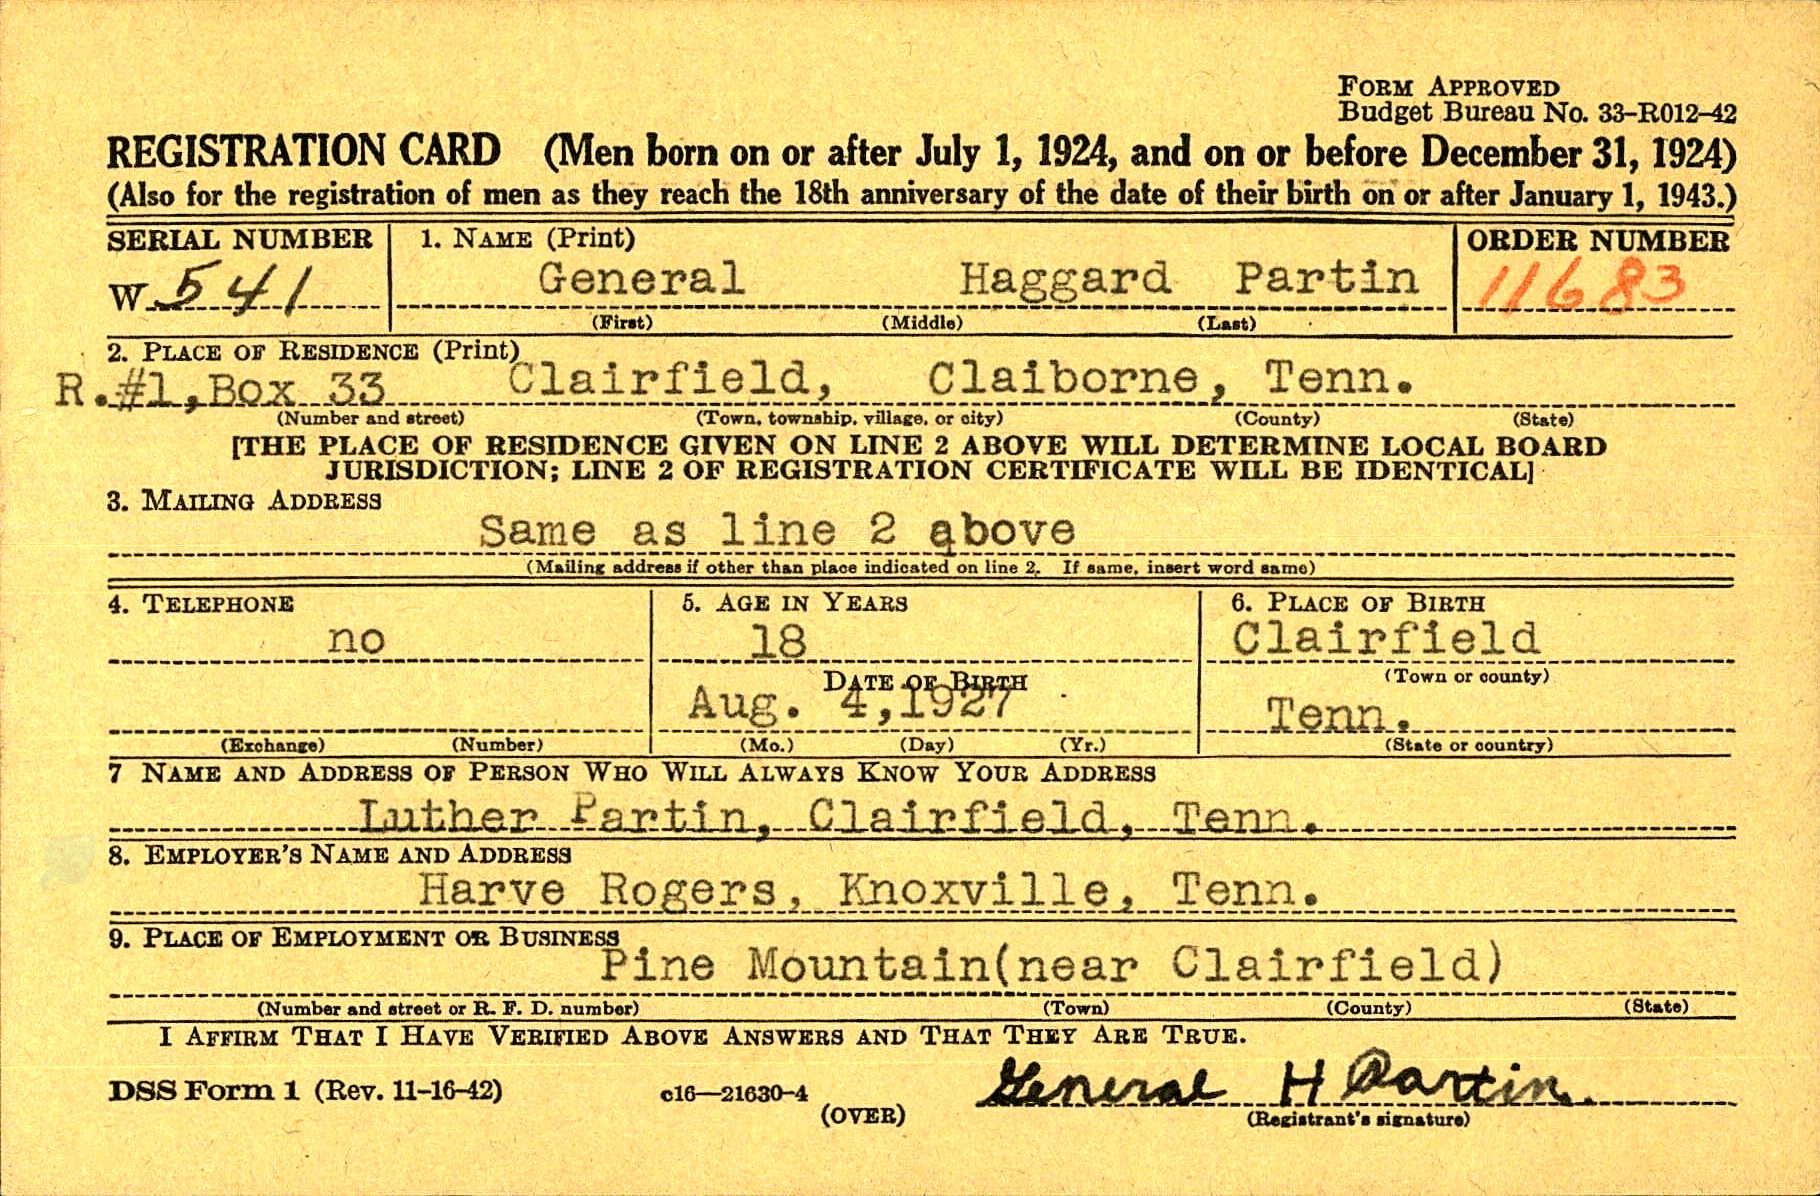 FORM APPROVED
Budget Bureau No. 33-R012-42
REGISTRATION CARD (Men born on or after July 1, 1924, and on or before December 31, 1924)
(Also for the registration of men as they reach the 18th anniversary of the date of their birth on or after January 1, 1943.)
SERIAL NUMBER 1. NAME (Print) ORDER NUMBER
W 541 General Haggard Partin 11683
(First) (Middle) (Last)
2. PLACE OF RESIDENCE (Print)
R.#1,Box 33 Clairfield, Claiborne, Tenn.
(Number and street) (Town, township, village, or city) (County) (State)
[THE PLACE OF RESIDENCE GIVEN ON LINE 2 ABOVE WILL DETERMINE LOCAL BOARD
JURISDICTION; LINE 2 OF REGISTRATION CERTIFICATE WILL BE IDENTICAL]
3. MAILING ADDRESS
Same as line 2 above
(Mailing address if other than place indicated on line 2. If same, insert word same)
4. TELEPHONE 5. AGE IN YEARS 6. PLACE OF BIRTH
no 18 Clairfield
(Town or county)
DATE OF BIRTH
Aug. 4,1927 Tenn.
(Exchange) (Number) (Mo.) (Day) (Yr.) (State or country)
7 NAME AND ADDRESS OF PERSON WHO WILL ALWAYS KNOW YOUR ADDRESS
Luther Partin, Clairfield, Tenn.
8. EMPLOYER'S NAME AND ADDRESS
Harve Rogers, Knoxville, Tenn.
9. PLACE OF EMPLOYMENT OR BUSINESS
Pine Mountain(near Clairfield)
(Number and street or R. F. D. number) (Town) (County) (State)
I AFFIRM THAT I HAVE VERIFIED ABOVE ANSWERS AND THAT THEY ARE TRUE.
DSS Form 1 (Rev. 11-16-42) c16—21630-4 General H Partin
(OVER) (Registrant's signature)